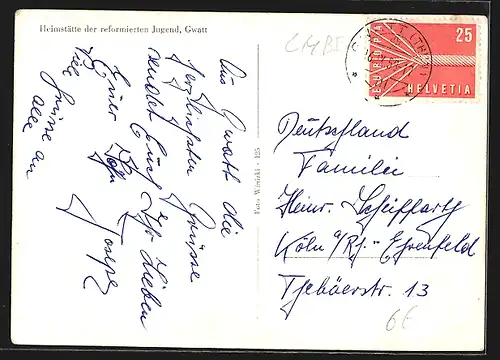 Heimstätte der reformierten Jugend, Gwatt
Aus Gwatt die
herzlichsten Grüsse
sendet Euch Ihr Lieben
Euer
Josef
Viele Grüsse an
alle
Foto Wirizki - 125
EUROPA
25
HELVETIA
Deutschland
Familie
Heinr. Scheiffarth
Köln a/Rh - Ehrenfeld
13
6€